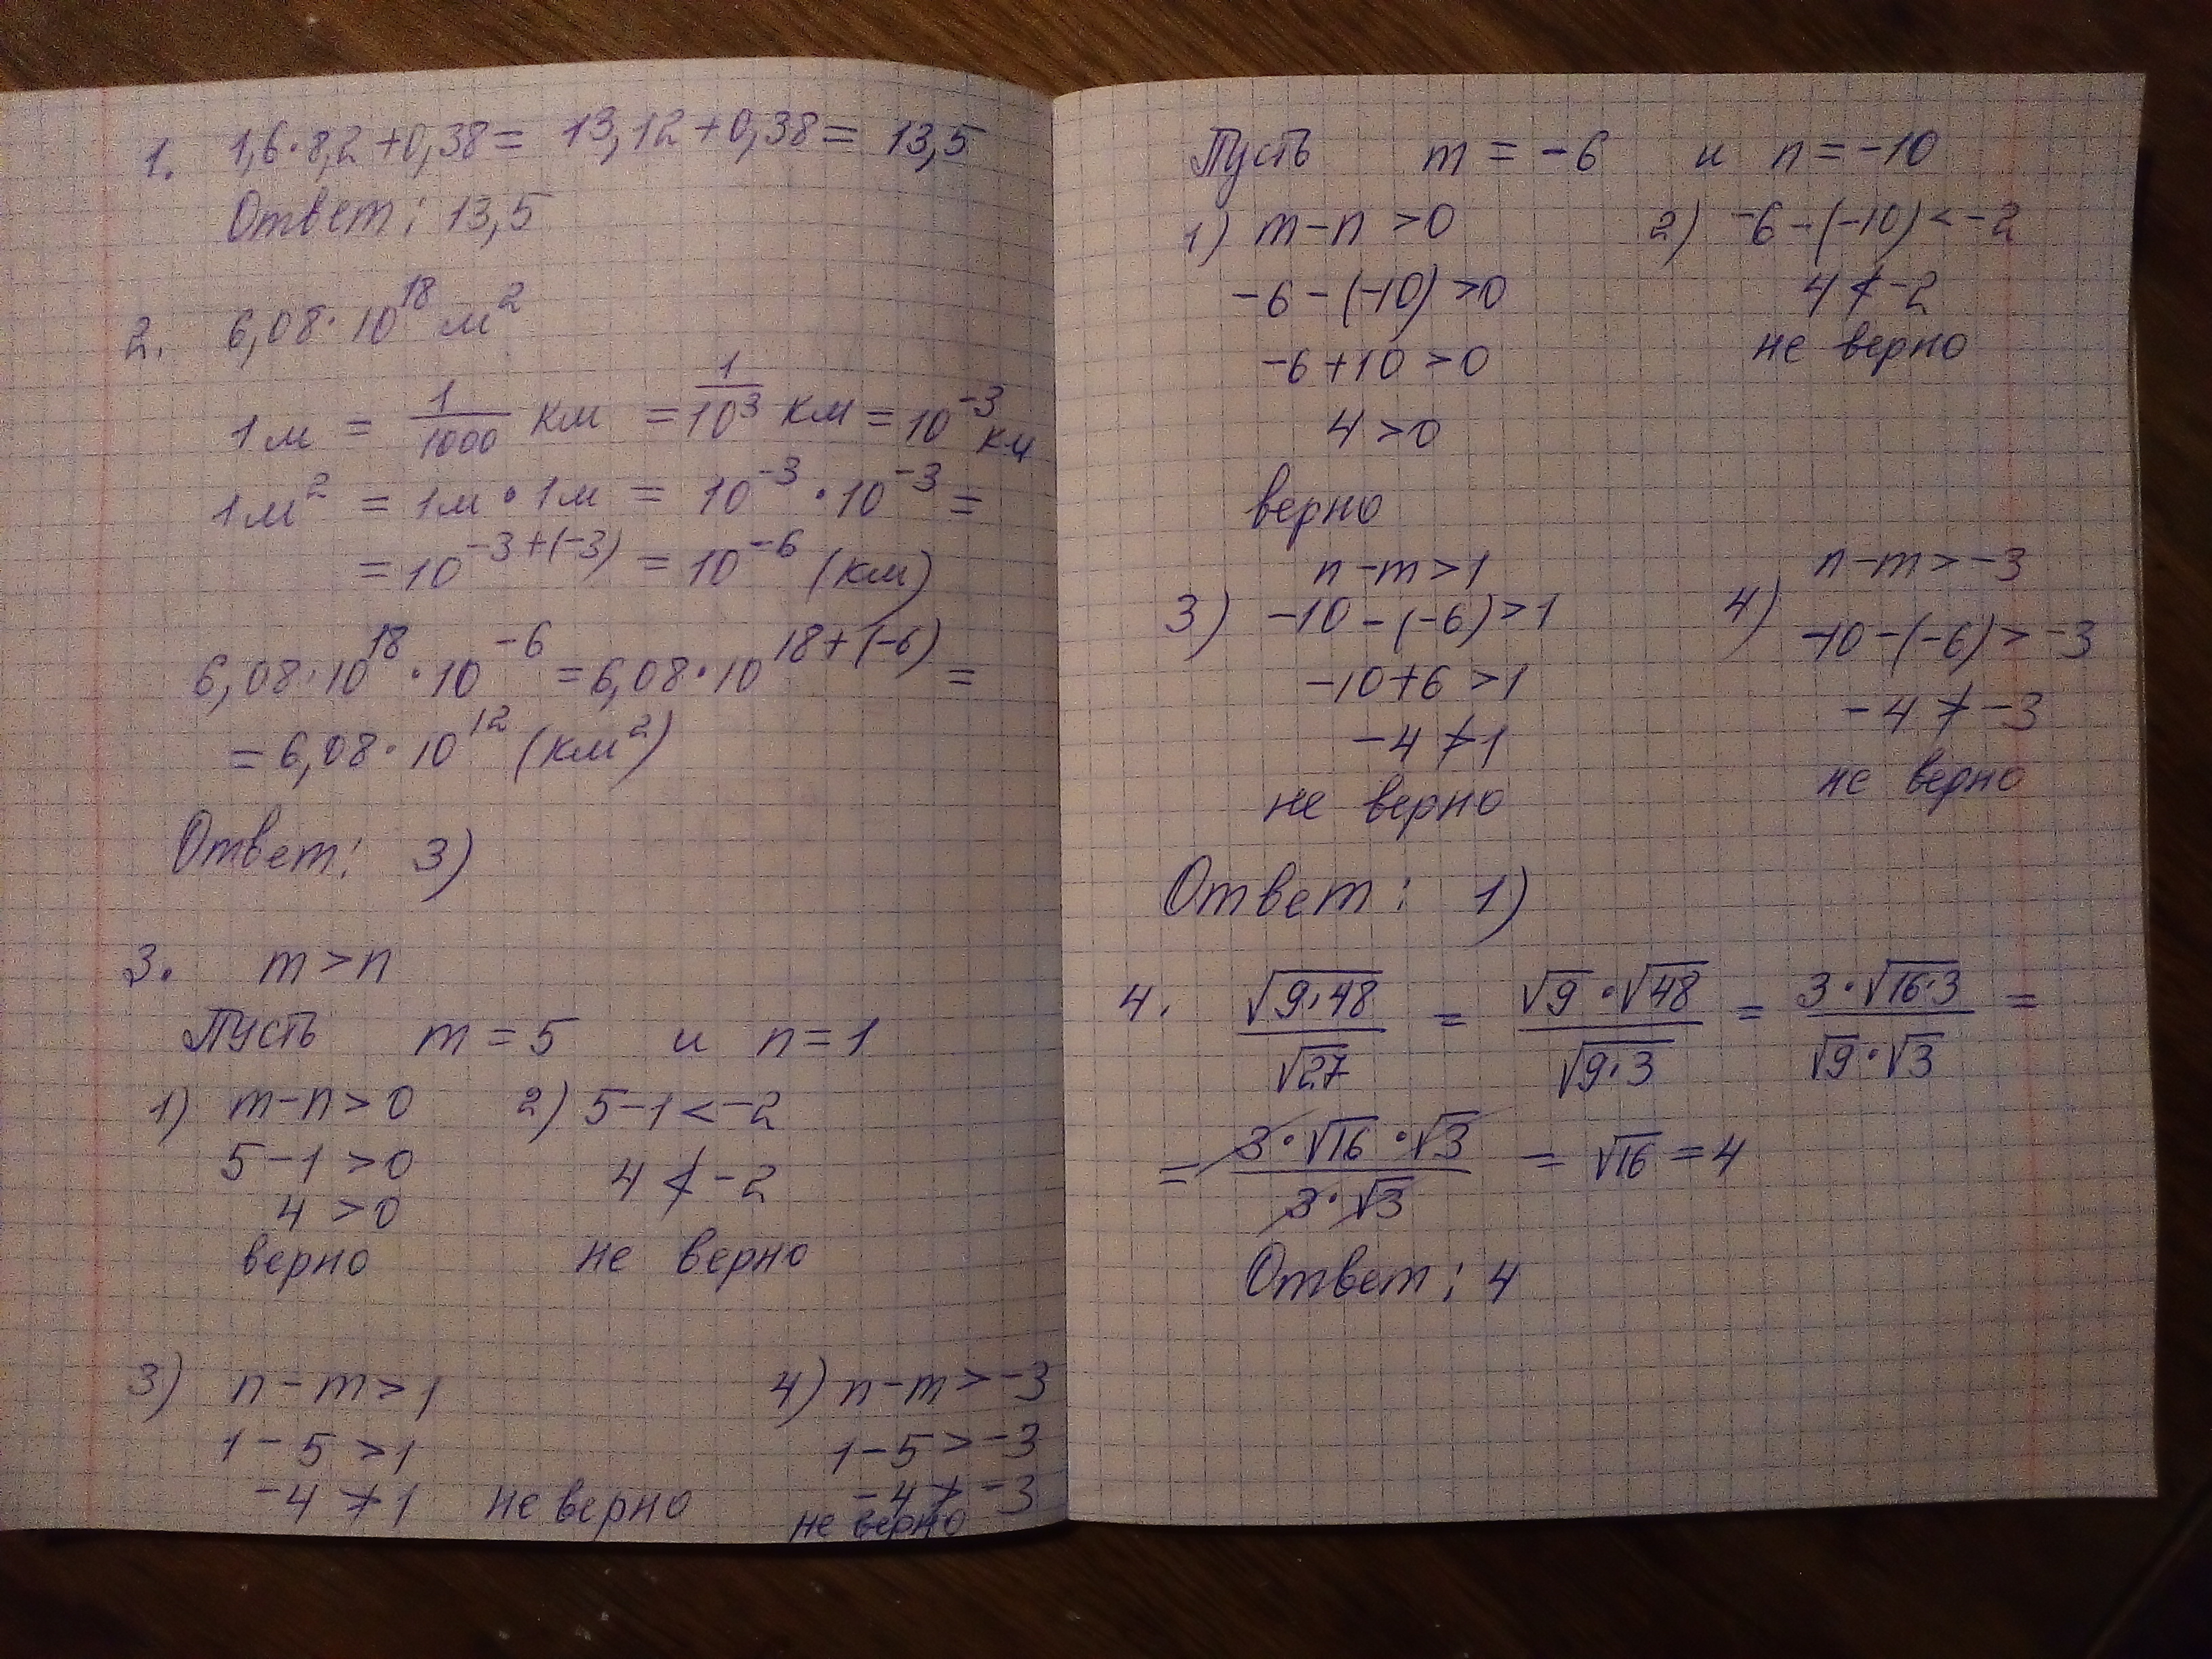 1. 1,6·8,2+0,38= 13,12+0,38= 13,5
Ответ: 13,5
2. 6,08·10^18 м^2
1м = 1/1000 км = 1/10^3 км = 10^-3 км
1м^2 = 1м·1м = 10^-3·10^-3 =
= 10^-3+(-3) = 10^-6 (км)
6,08·10^18·10^-6 = 6,08·10^18+(-6) =
= 6,08·10^12 (км^2)
Ответ: 3)
3. m>n
Пусть m=5 и n=1
1) m-n>0 2) 5-1<-2
5-1>0 4≮-2
4>0
верно не верно
3) n-m>1 4) n-m>-3
1-5>1 1-5>-3
-4≯1 не верно -4≯-3
не верно
Пусть m=-6 и n=-10
1) m-n>0 2) -6-(-10)<-2
-6-(-10)>0 4≮-2
-6+10>0 не верно
4>0
верно
n-m>1 n-m>-3
3) -10-(-6)>1 4) -10-(-6)>-3
-10+6>1 -4≯-3
-4≯1 не верно
не верно
Ответ: 1)
4. √9·48/√27 = √9·√48/√9·3 = 3·√16·3/√9·√3 =
= 3·√16·√3/3·√3 = √16 = 4
Ответ: 4